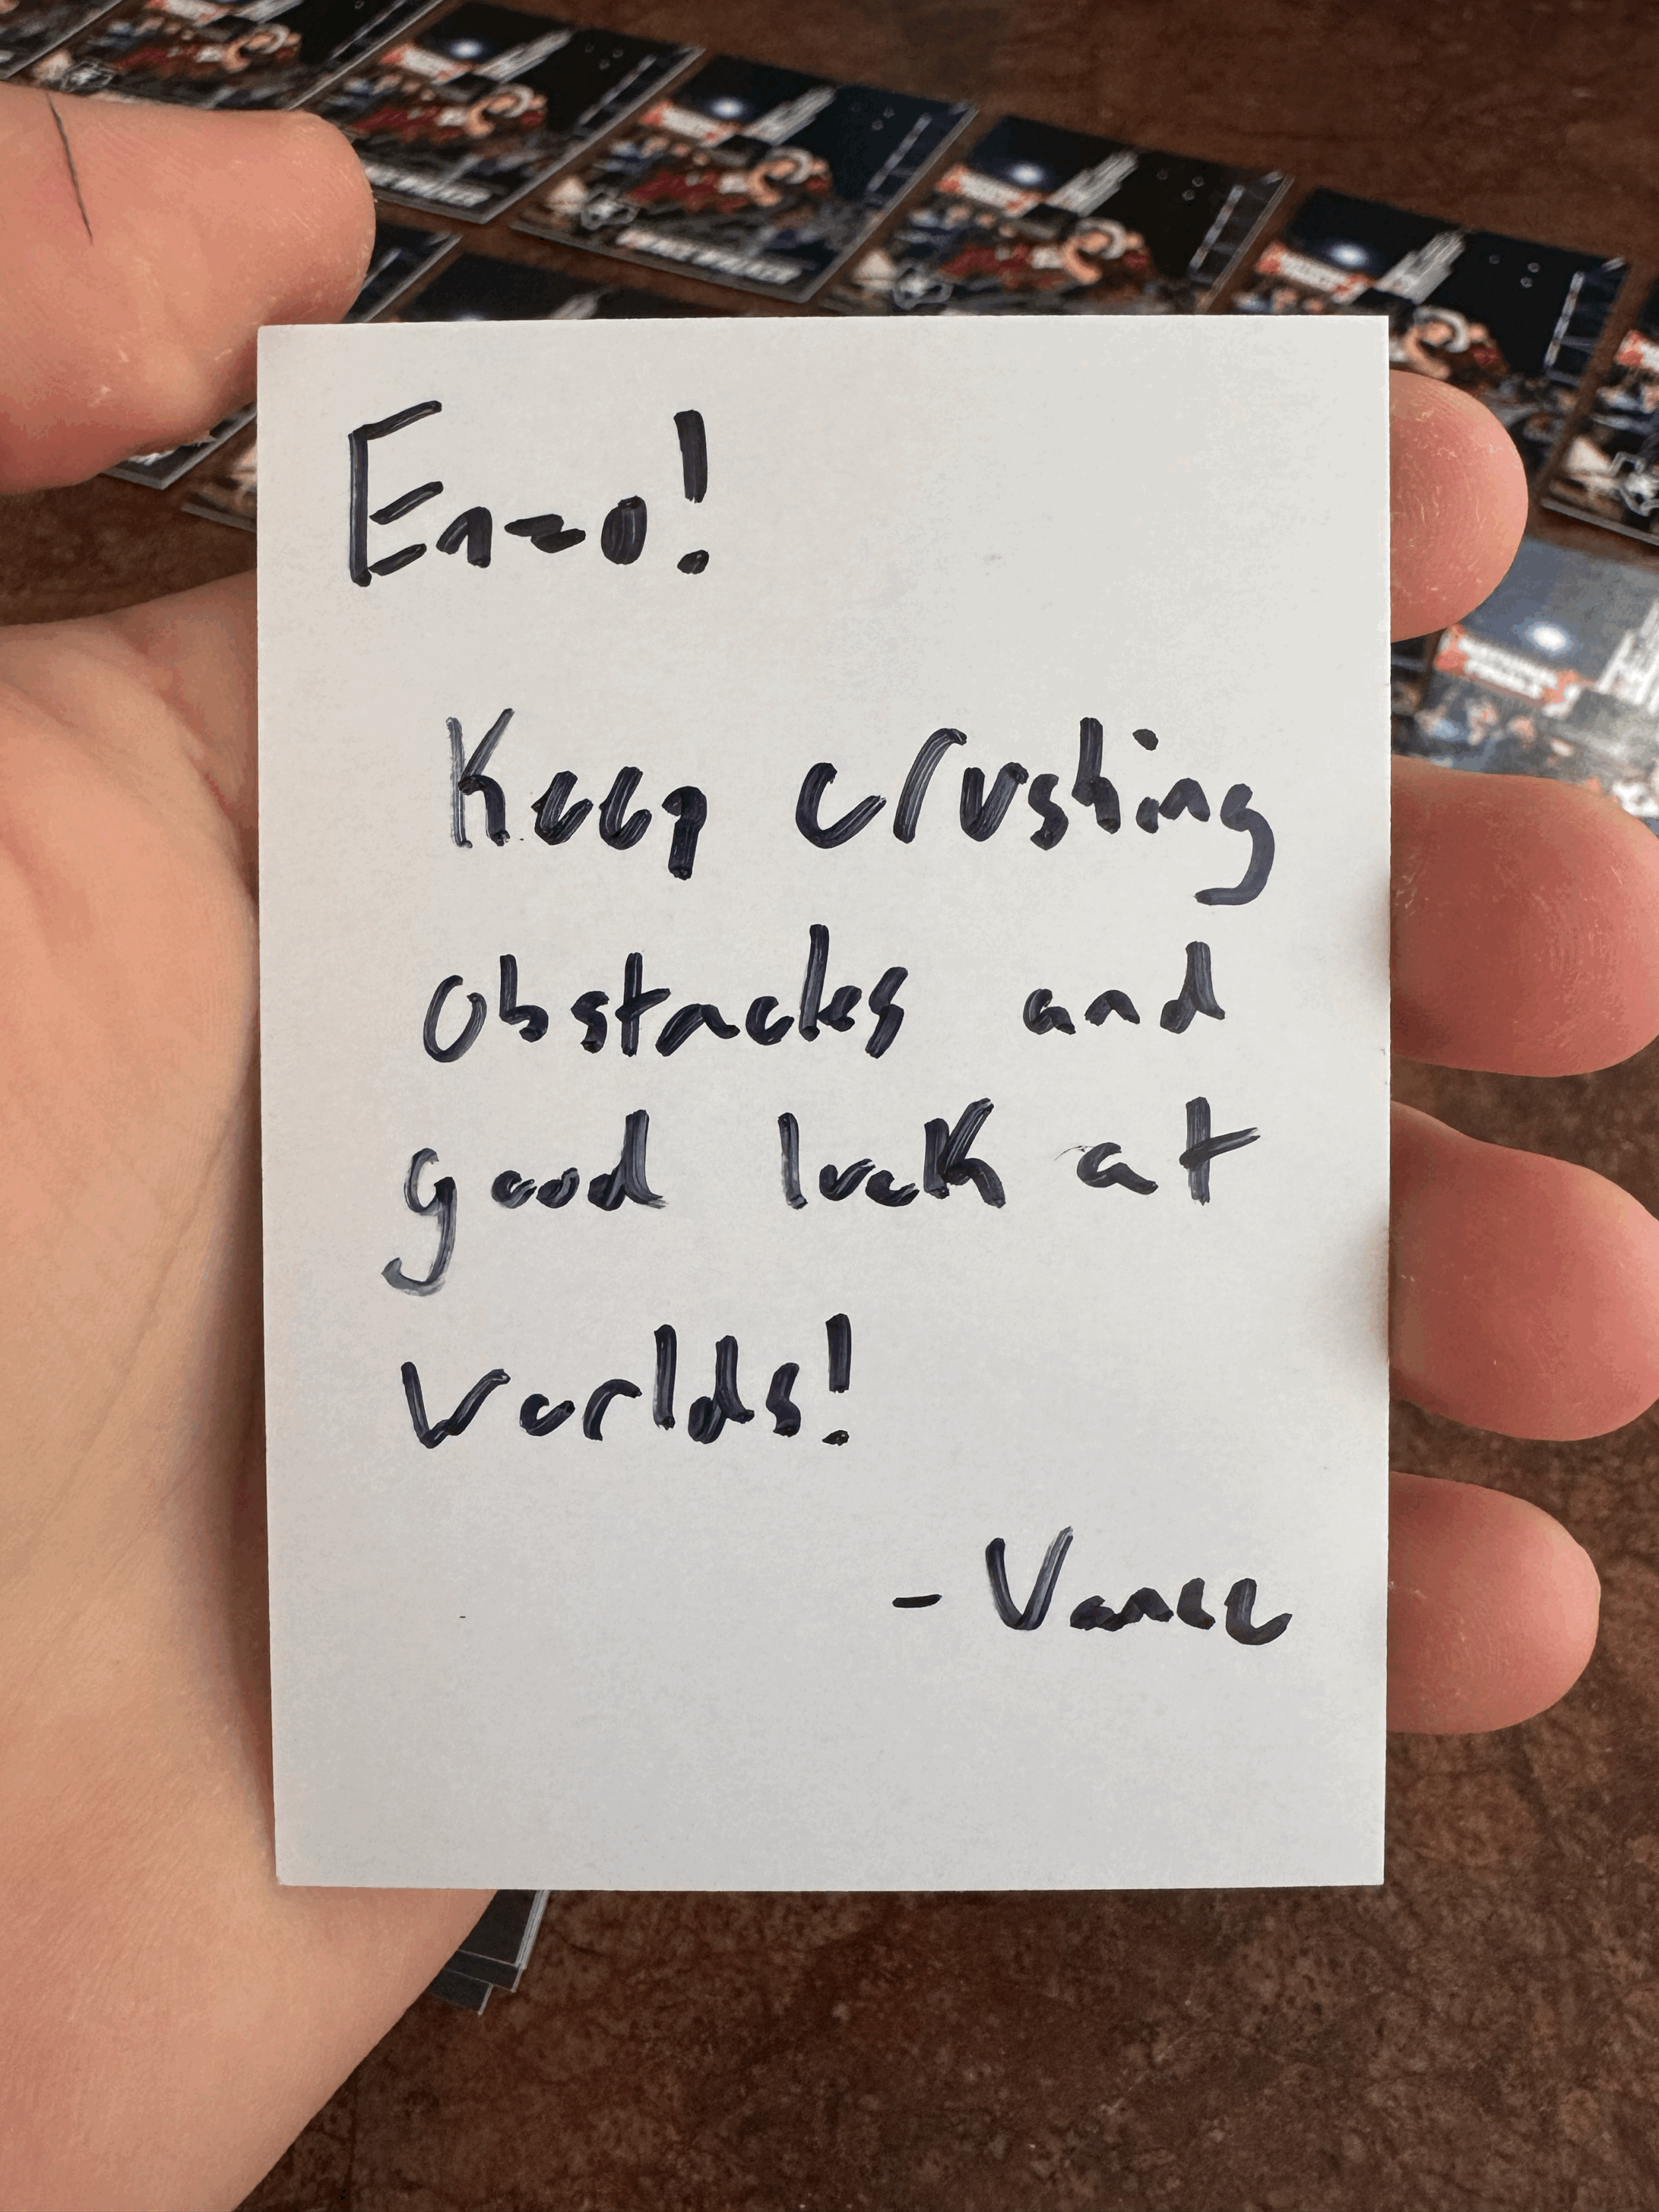 Enzo!
Keep crushing
obstacles and
good luck at
worlds!
- Vance